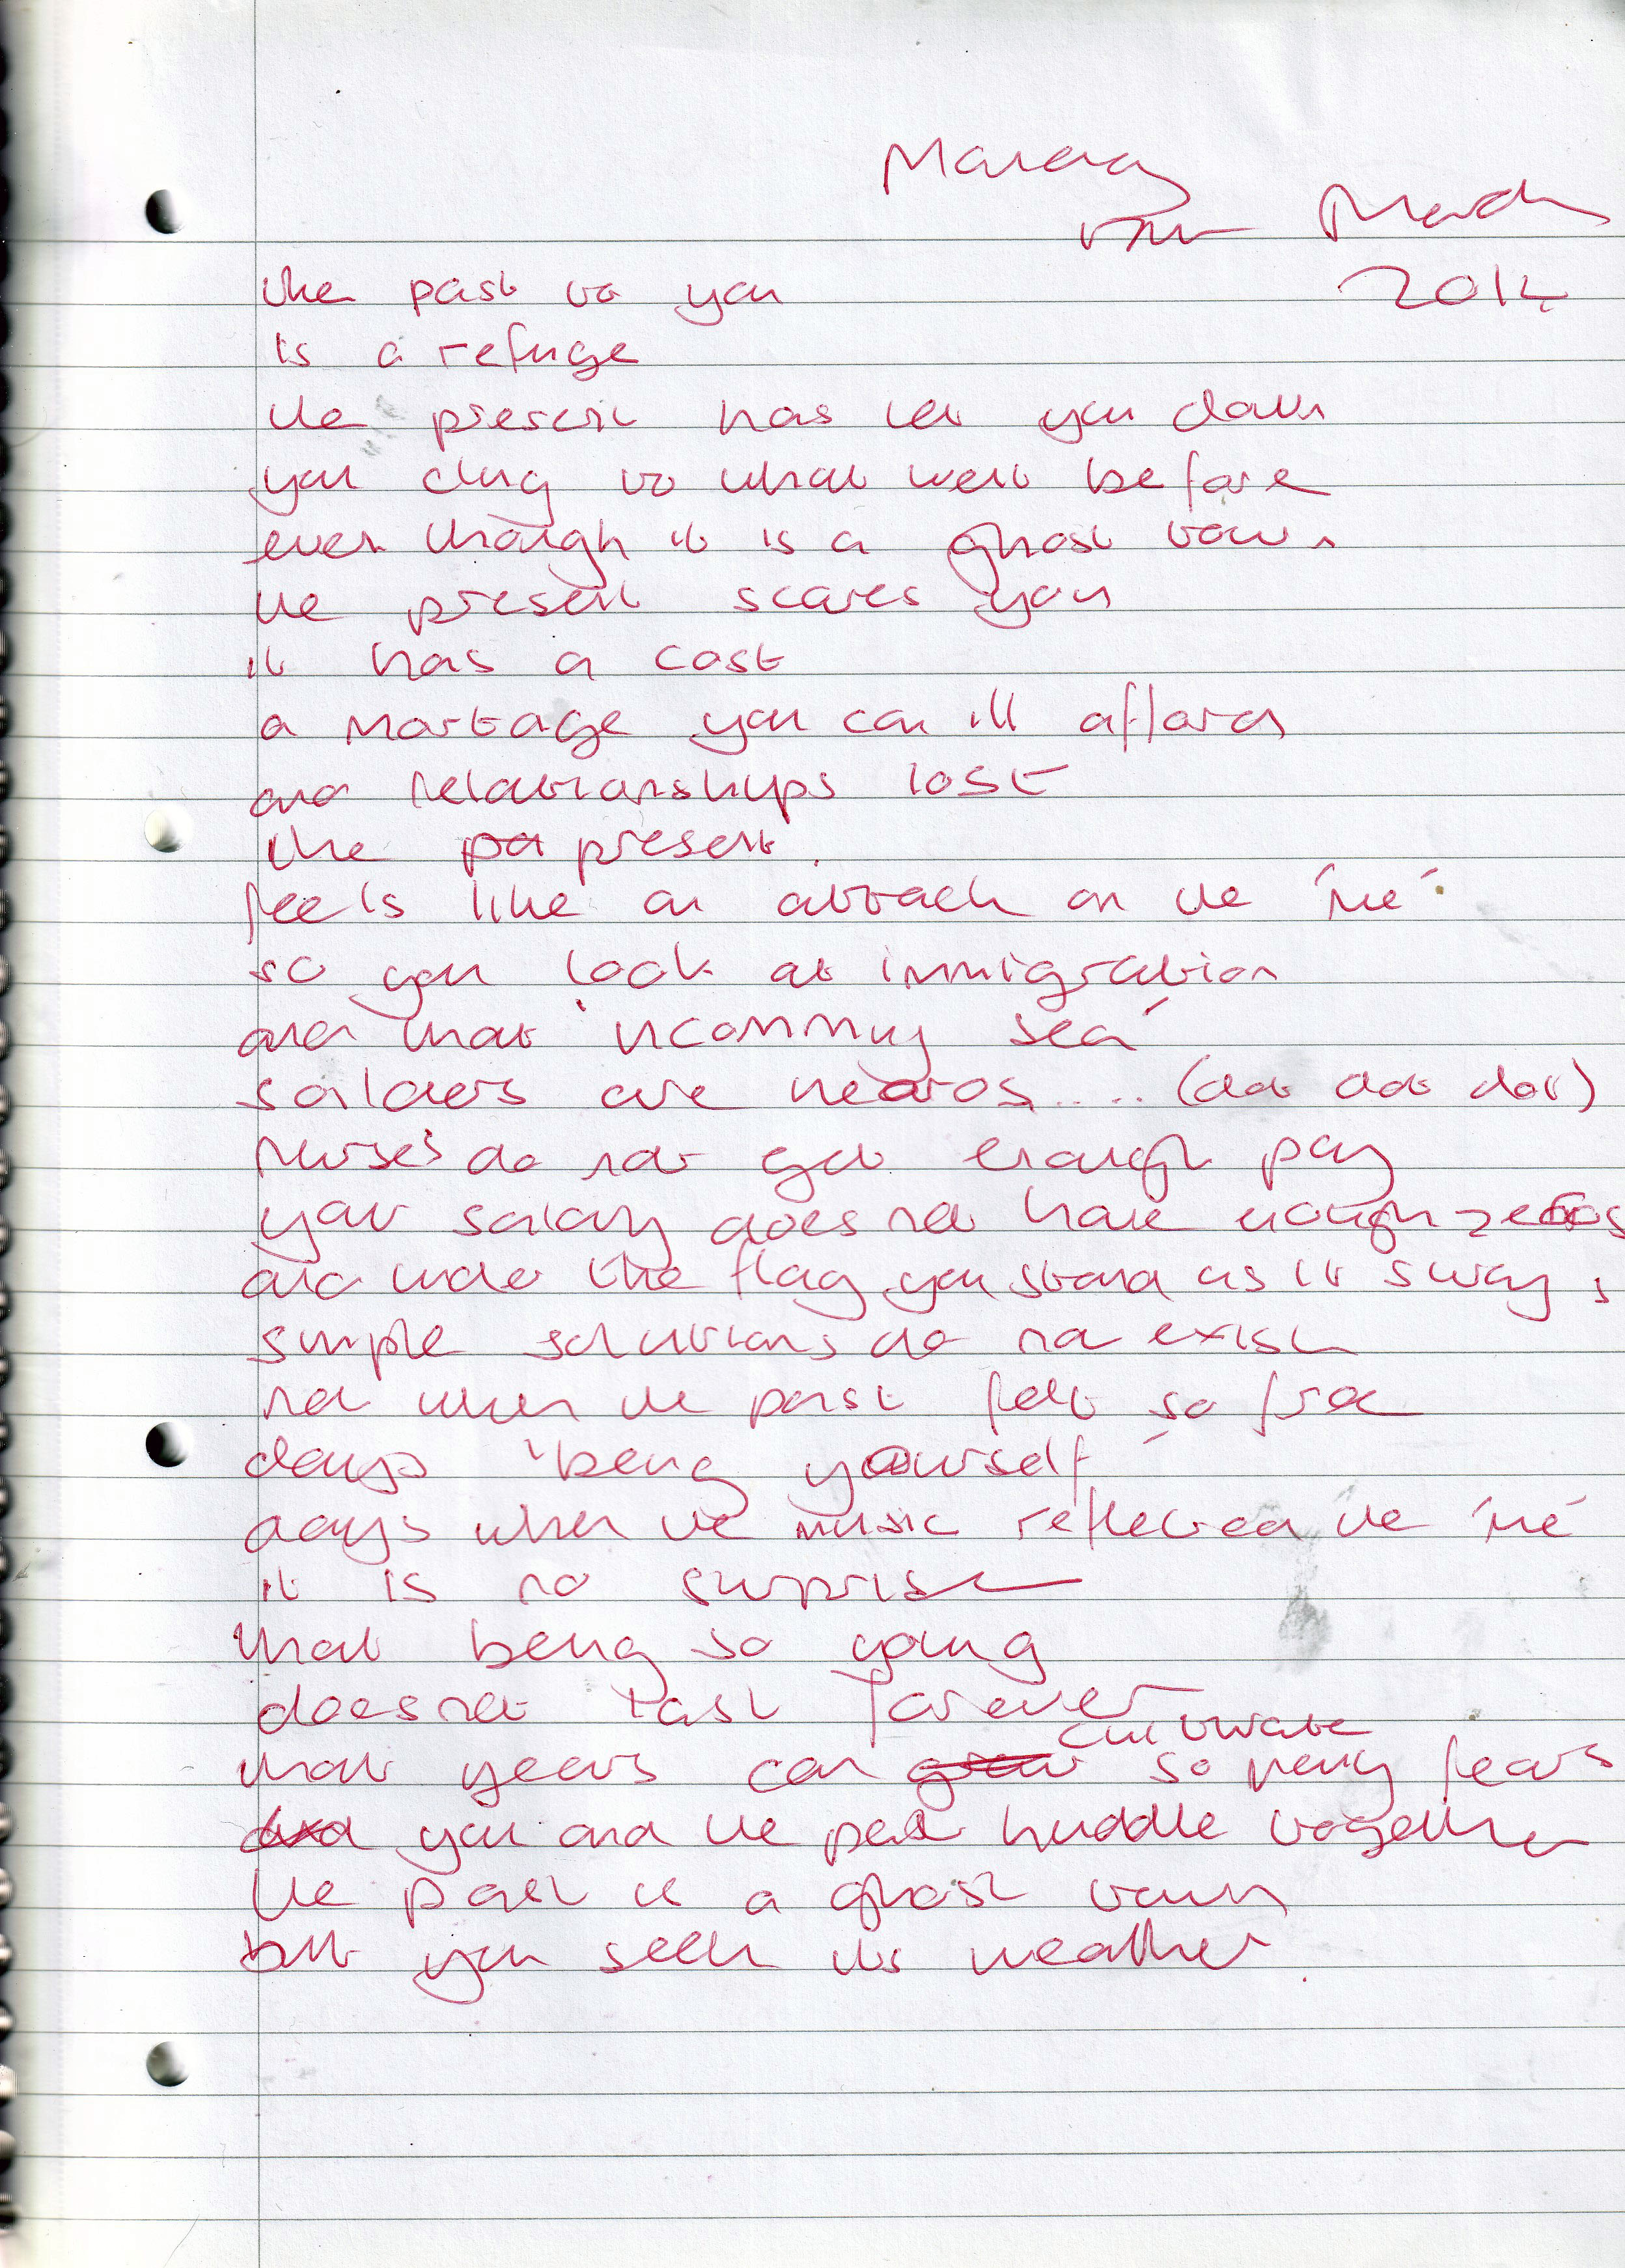 Monday
March
2012
the past to you
is a refuge
the present has let you down
you cling to what went before
even though it is a ghost town
the present scares you
it has a cost
a mortage you can ill afford
and relationships lost
the pa present
feels like an attack on the 'me'
so you look at immigration
and that 'incomming sea'
soilders are hearos.... (dot dot dot)
nurse's do not get enough pay
your salary does not have enough zeros
and under the flag you stand as it sways
simple solutions do not exist
not when the past felt so free
days 'being yourself'
days when the music reflected the 'me'
it is no surprise
that being so young
does not last forever
that years can grow cultivate so many fears
and you and the past huddle together
the past is a ghost town
but you seek its weather